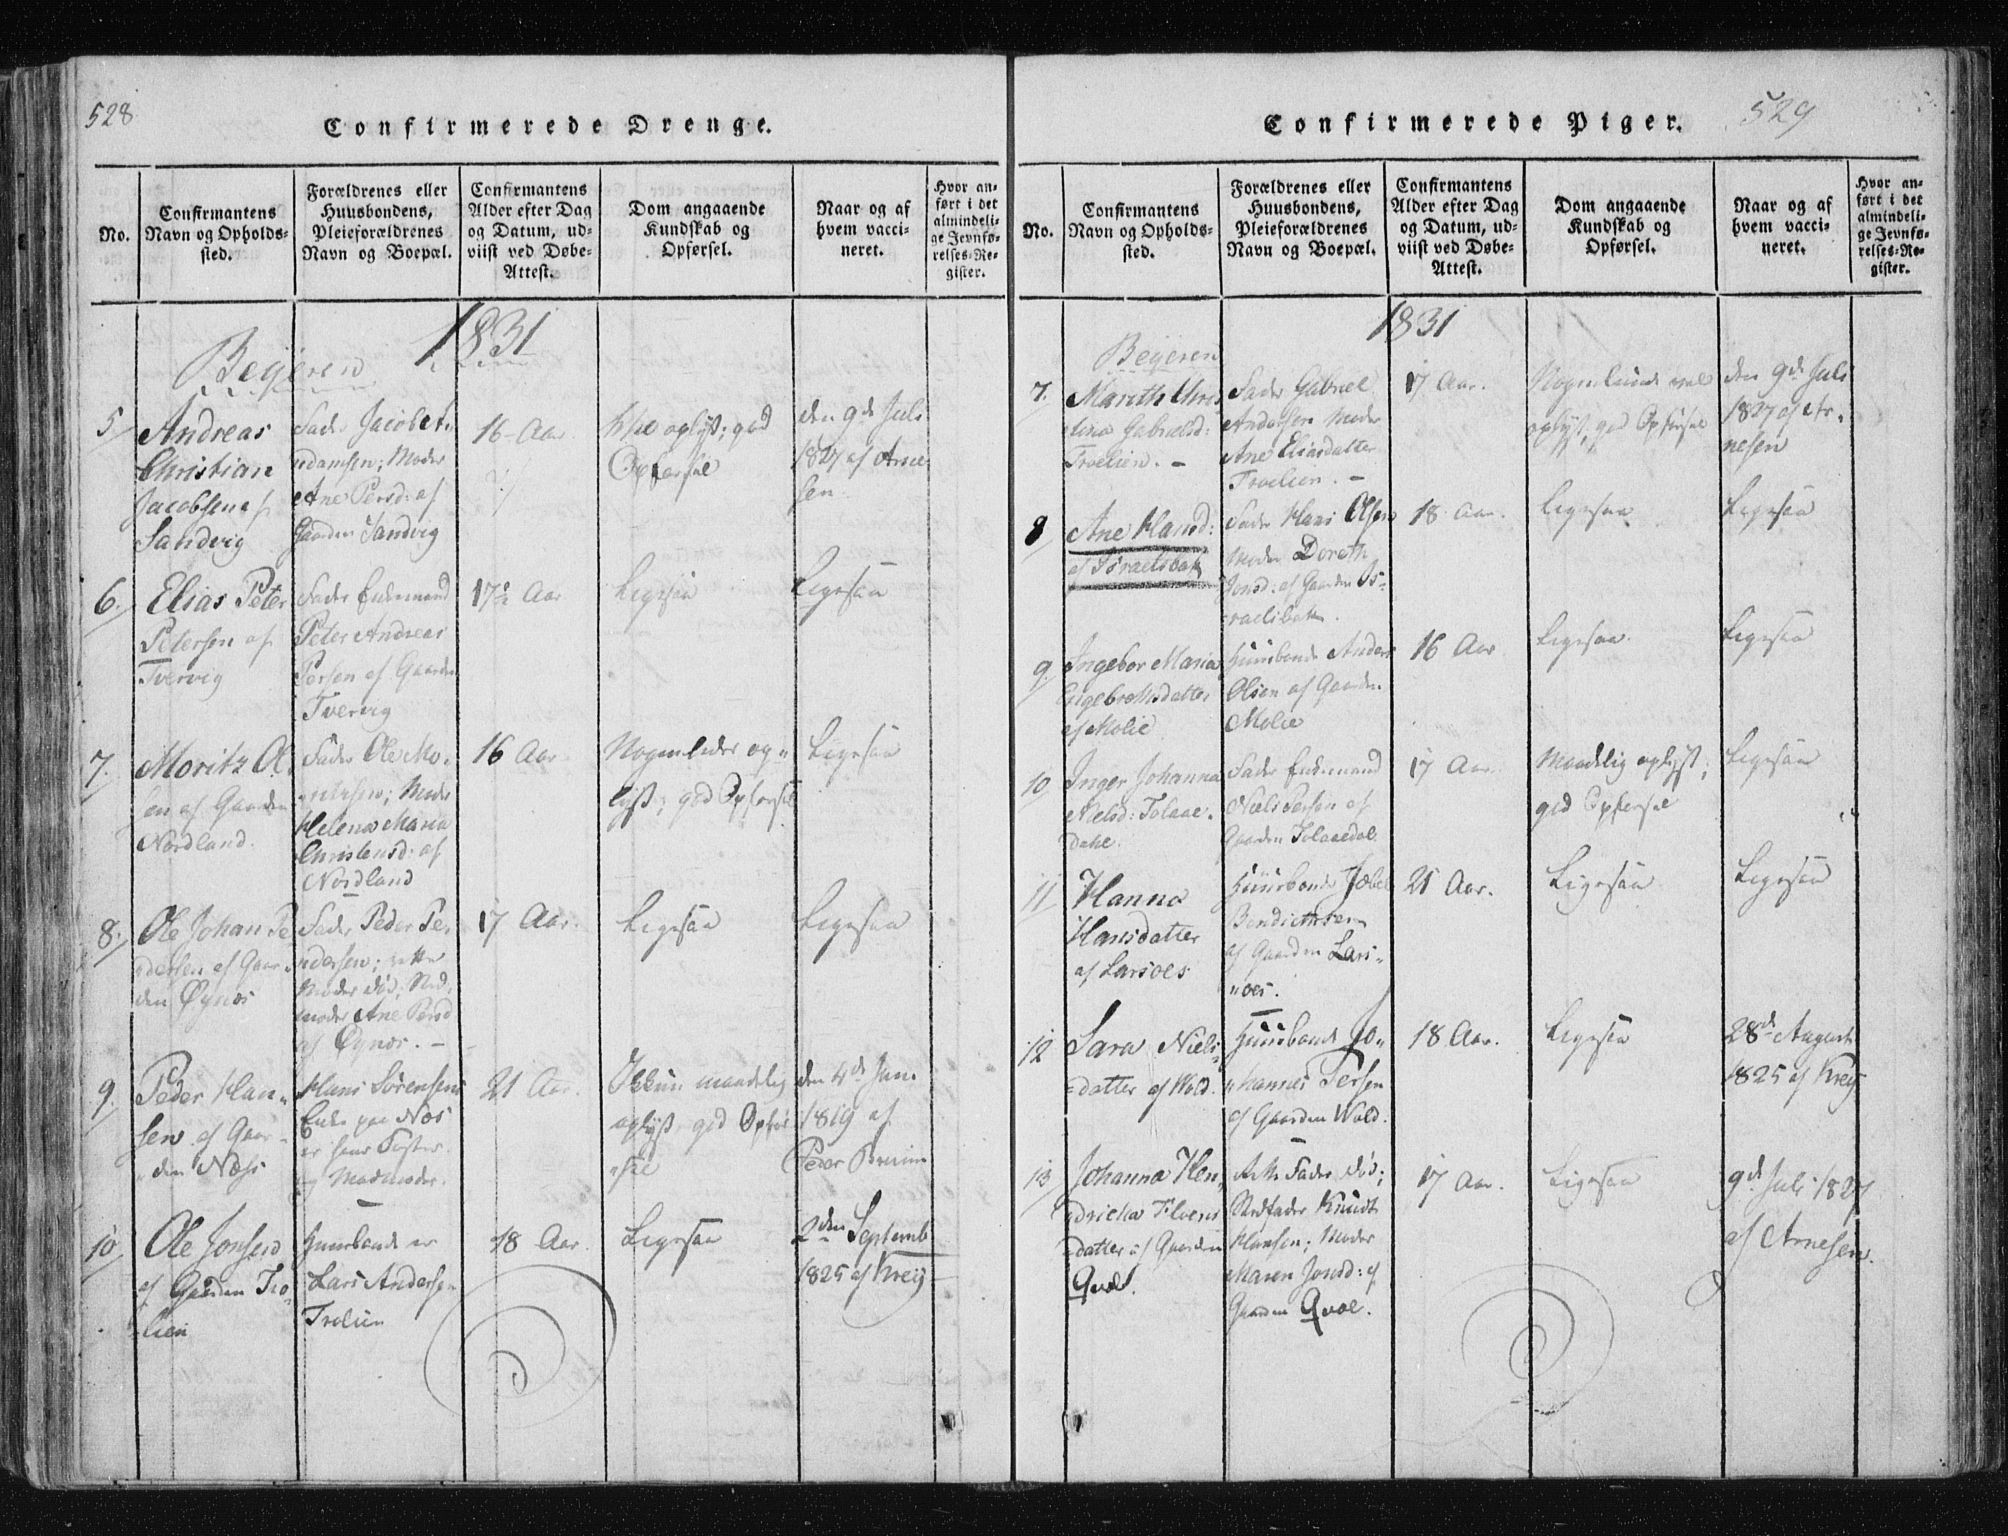 528
Confirmerede Drenge.
No.
Confirmantens
Navn og Opholds-
sted.
Forældrenes eller
Huusbondens,
Pleieforældrenes
Navn og Boepæl.
Confirmantens
Alder efter Dag
og Datum, ud-
viist ved Døbe-
Attest.
Dom angaaende
Kundskab og
Opførsel.
Naar og af
hvem vacci-
neret.
Hvor an-
ført i det
almindeli-
ge Jevnfø-
relses-Re-
gister.
1831
Beyeren
5
Andreas
Christian
Jacobsen af
Sandvig
Fader Jacob A-
damsen; Moder
Ane Persd: af
Gaarden Sandvig
16 Aar
oplyst; god
Opførsel
den 9de Juli
1827 af Arne-
sen
6.
Elias Peter
Petersen af
Tvervig
Fader Enkemand
Peter Andreas
Persen af Gaarden
Tvervig
17½ Aar
Ligesaa
Ligesaa
7.
Moritz Ol-
sen af Gaarden
Nordland.
Fader Ole Mo-
Moder
Helena Maria
Christensd: af
Nordland
16 Aar
Nogenledes op-
lyst; god Opførsel
Ligesaa
8.
Ole Johan Pe-
dersen af Gaar-
den Øynes
Fader Peder Pe-
dersen; rette
Moder død; Sted-
moder Ane Persd
af Øynes. -
17 Aar.
Ligesaa
Ligesaa
9.
Peder Han-
sen af Gaar-
den Næss
Hans Sørensens
Enke paa Næs
er hans Foster
og Madmoder.
21 Aar.
maadelig
oplyst, god Opfør-
sel
den 4de Jun
1819 af
Peder
10
Ole Jonsen
af Gaarden Tro-
lien
Huusbonde er
Lars Andersen
Trolien
18 Aar
Ligesaa
2den Septemb
1825 af Krey
529
Confirmerede Piger.
No.
Confirmantens
Navn og Opholds-
sted.
Forældrenes eller
Huusbondens,
Pleieforældrenes
Navn og Boepæl.
Confirmantens
Alder efter Dag
og Datum, ud-
viist ved Døbe-
Attest.
Dom angaaende
Kundskab og
Opførsel.
Naar og af
hvem vacci-
neret.
Hvor an-
ført i det
almindeli-
ge Jevnfø-
relses-Re-
gister.
1831
Beyeren
7.
Mareth Chris-
tina Gabrielsd:
Troelien. -
Fader Gabriel
Andersen Moder
Ane Eliasdatter
Troelien. -
17 Aar.
Nogenlunde vel
oplyst, god Opførsel
den 9de Juli
1827 af Ar-
nesen
8
Ane Hansd:
af Israelsbak
Fader Hans Olsen
Moder Doreth
Jonsd: af Gaarden Is-
raelsbak.
18 Aar.
Ligesaa
Ligesaa
9.
Ingebor Maria
Engebrethsdatter
af Molie
Huusbonde Anders
Olsen af Gaarden
Molie
16 Aar
Ligesaa
Ligesaa
10
Inger Johanna
Nielsd: Tolaae-
Dahl.
Fader Enkemand
Niels Persen af
Gaarden Tolaaedal
17 Aar.
Maadelig oplyst,
god Opførsel
Ligesaa
11
Hanna
Hansdatter
af Larsoes
Huusbonde
Bendictsen
af Gaarden Lars-
oes.
21 Aar.
Ligesaa
Ligesaa
12
Sara Niels-
datter af Wold.
Huusbonde Jo-
hannes Persen
af Gaarden Wold.
18 Aar.
Ligesaa
28de August
1825 af Krey
13
Johanna Hen-
dricka Elvens
datter af Gaarden
Qvæl.
Fader død;
Stedfader Knudt
Hansen; Moder
Maren Jonsd: af
Gaarden Qvæl.
17 Aar.
Ligesaa
9de Juli 1827
af Arnesen.